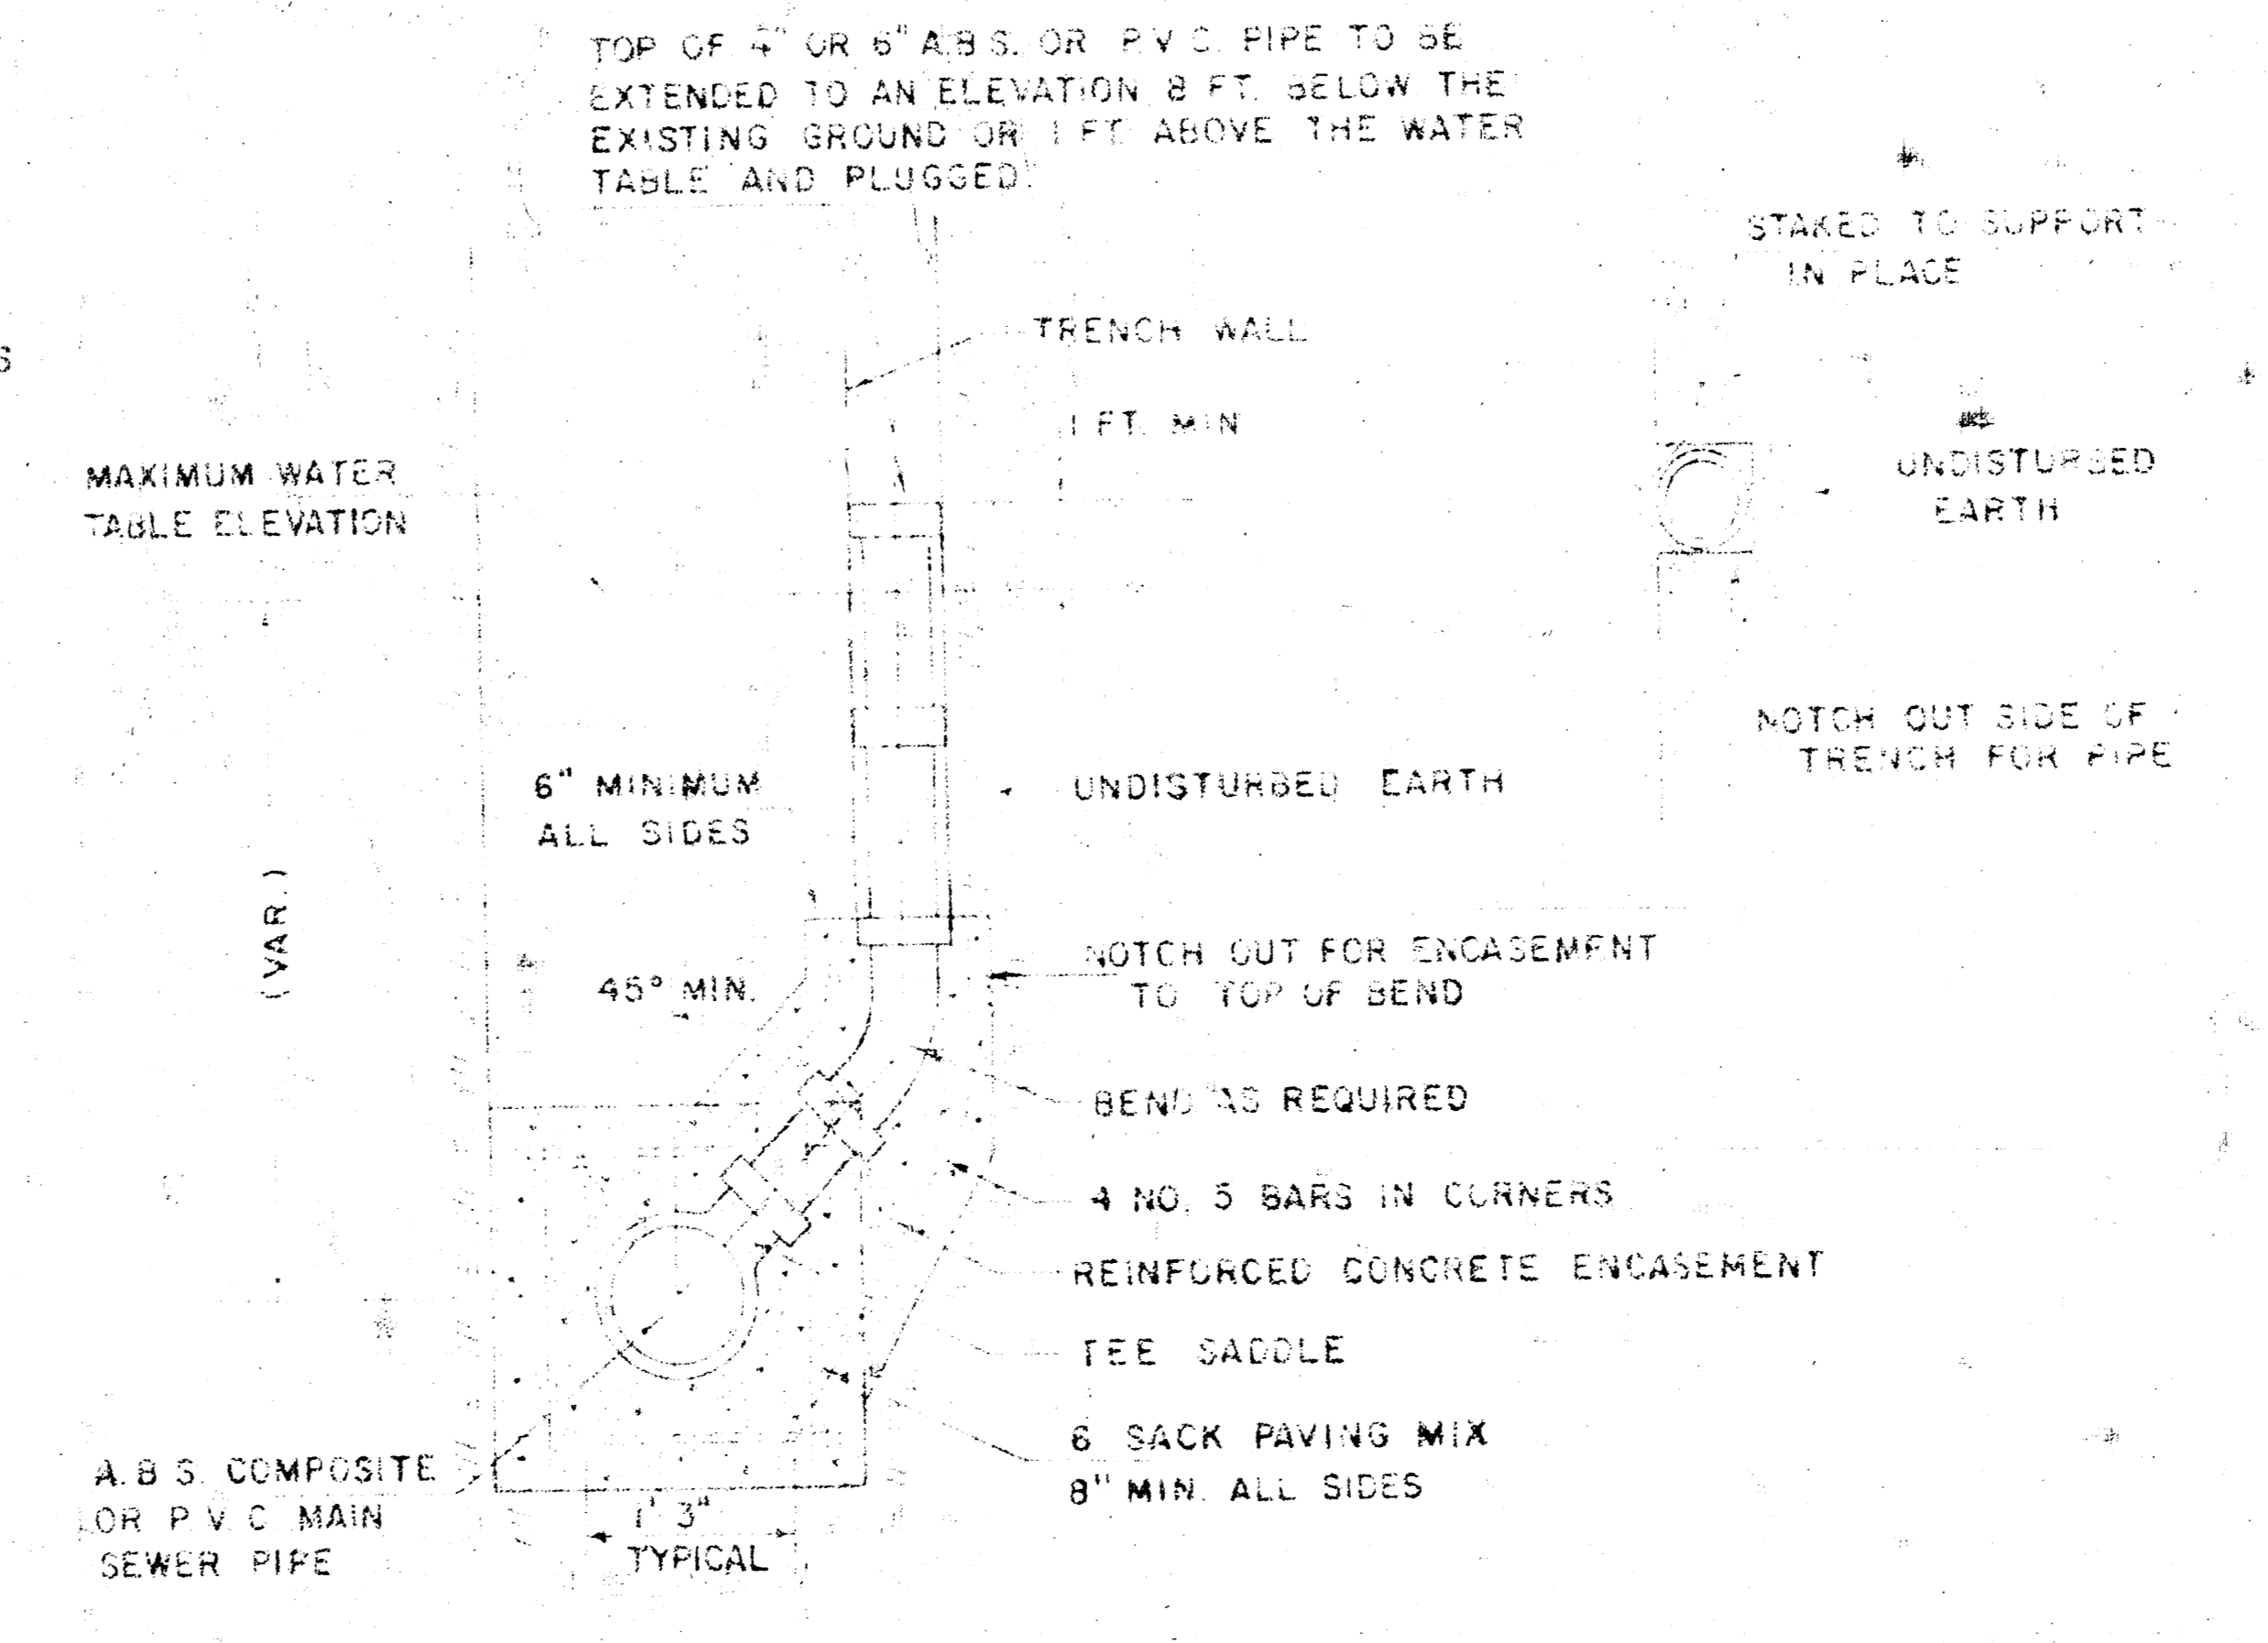 TOP OF 4" OR 6" A.B.S. OR P.V.C. PIPE TO BE
EXTENDED TO AN ELEVATION 8 FT. BELOW THE
EXISTING GROUND OR 1 FT. ABOVE THE WATER
TABLE AND PLUGGED.
STAKED TO SUPPORT
IN PLACE
TRENCH WALL
S
1 FT. MIN
MAXIMUM WATER
TABLE ELEVATION
UNDISTURBED
EARTH
NOTCH OUT SIDE OF
TRENCH FOR PIPE
6" MINIMUM
ALL SIDES
UNDISTURBED EARTH
(VAR.)
45° MIN.
NOTCH OUT FOR ENCASEMENT
TO TOP OF BEND
BEND AS REQUIRED
4 NO. 5 BARS IN CORNERS
REINFORCED CONCRETE ENCASEMENT
TEE SADDLE
6 SACK PAVING MIX
8" MIN. ALL SIDES
A.B.S. COMPOSITE
OR P.V.C. MAIN
SEWER PIPE
1' 3"
TYPICAL